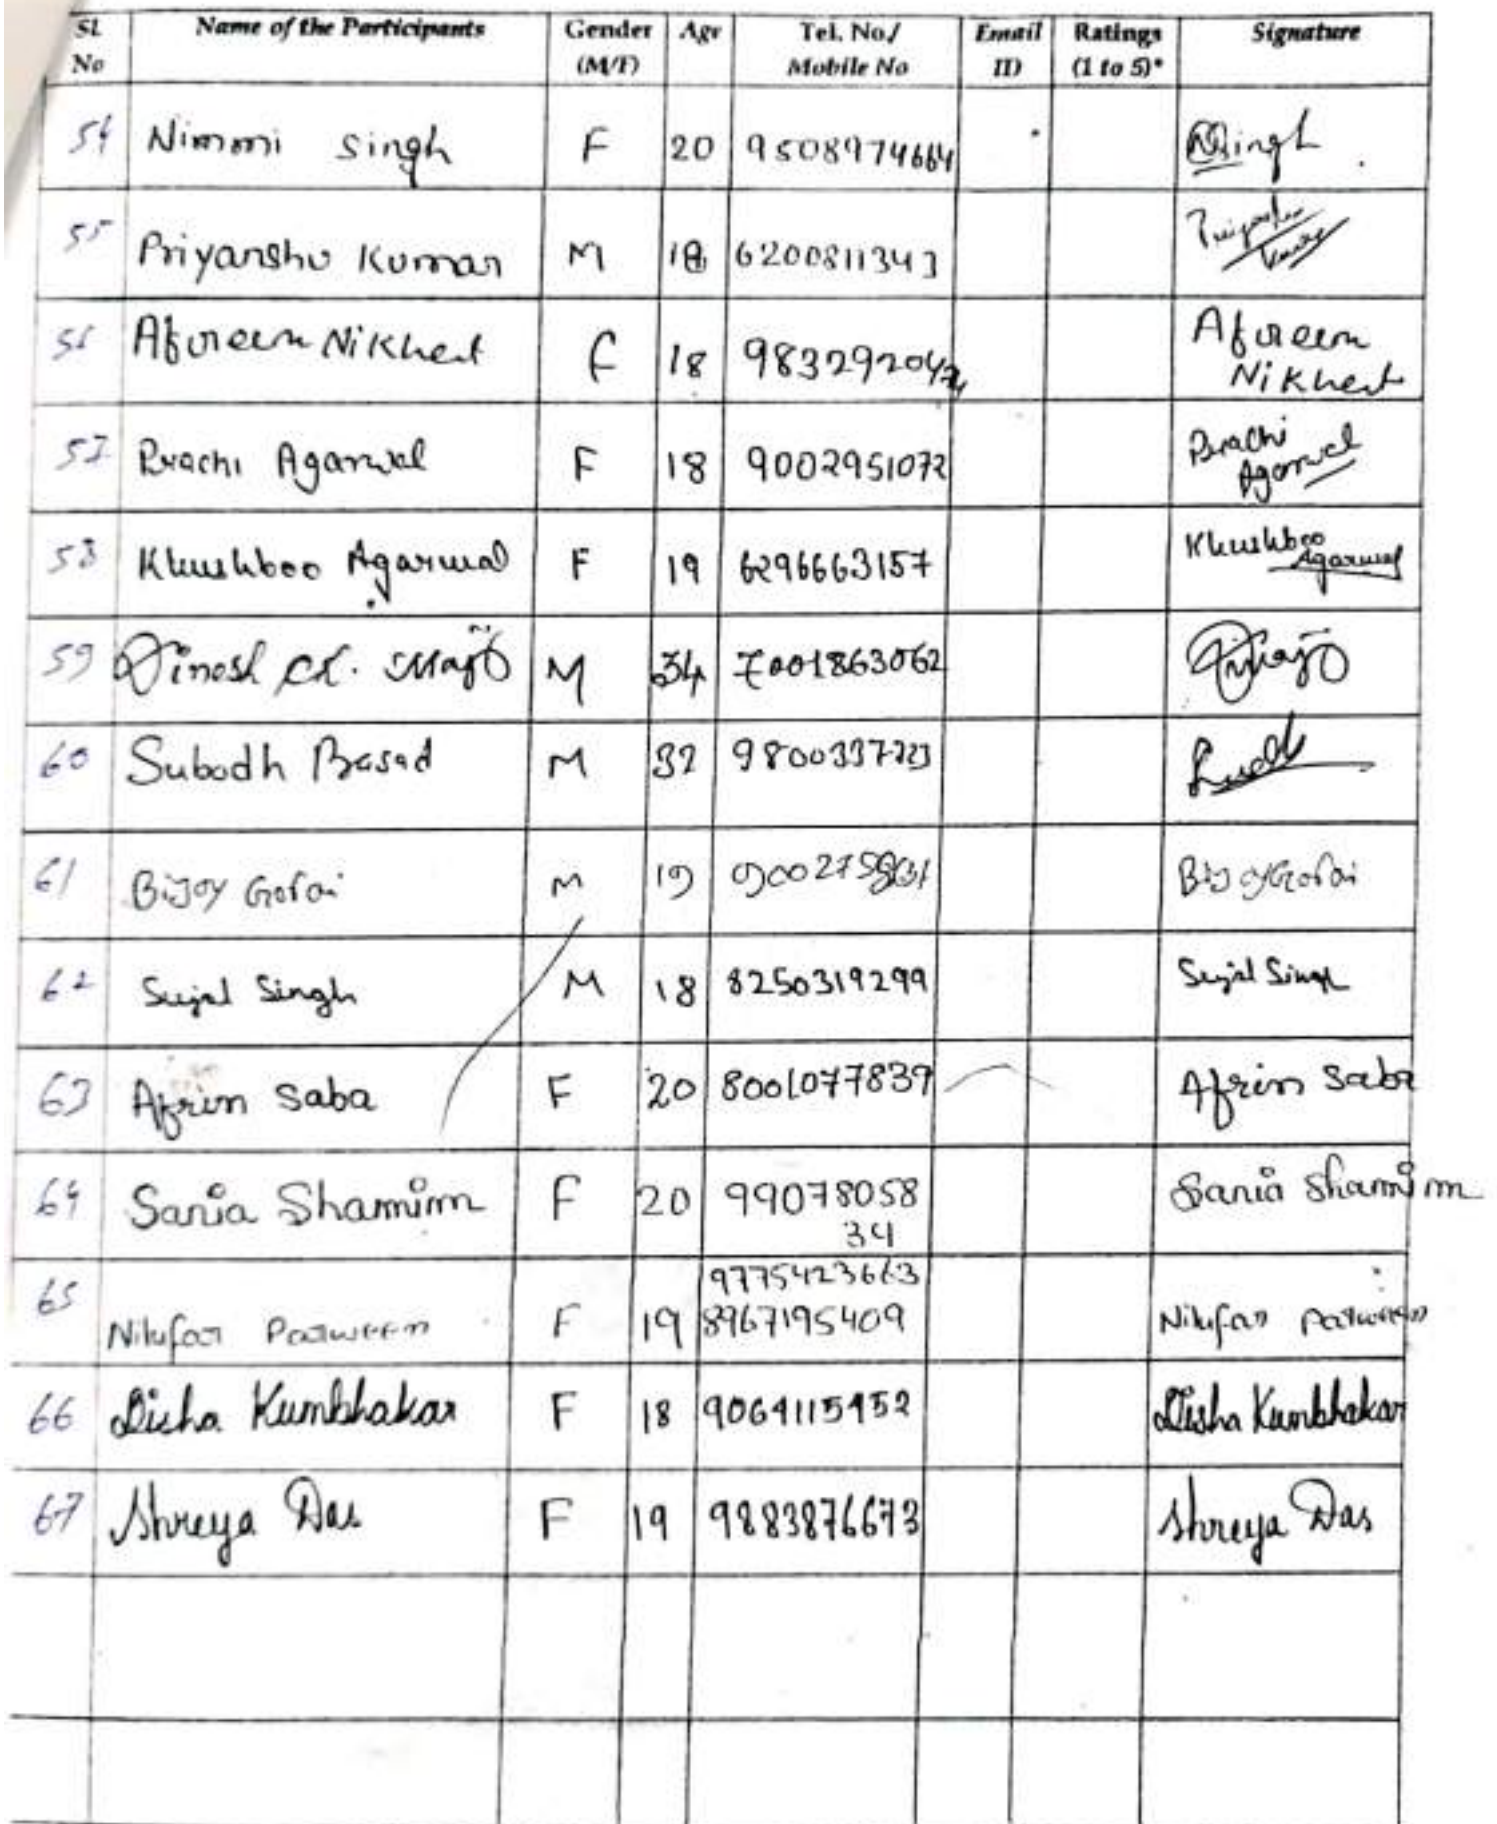 Sl. No Name of the Participants Gender (M/F) Age Tel. No./ Mobile No Email ID Ratings (1 to 5)* Signature
54 Nimmi Singh F 20 9508974664 NSingh
55 Priyanshu Kumar M 18 6200811343 Priyanshu Kumar
56 Afureen Nikhert F 18 Afureen Nikhert
57 Prachi Agarwal F 18 9002951072 Prachi Agarwal
58 Khushboo Agarwal F 19 6296663157 Khushboo Agarwal
59 Dinesh M 34 7001863062
60 Subodh Prasad M 32
61 Bijoy Gorai M 19 Bijoy Gorai
62 Sujal Singh M 18 8250319299 Sujal Singh
63 Afrin Saba F 20 8001077839 Afrin Saba
64 Sania Shamim F 20 99078058 Sania Shamim
34
9775423663
65 Nilufar Parween F 19 8967195409 Nilufar Parween
66 Disha Kumbhakar F 18 9064115952 Disha Kumbhakar
67 Shreya Das F 19 9883876673 Shreya Das